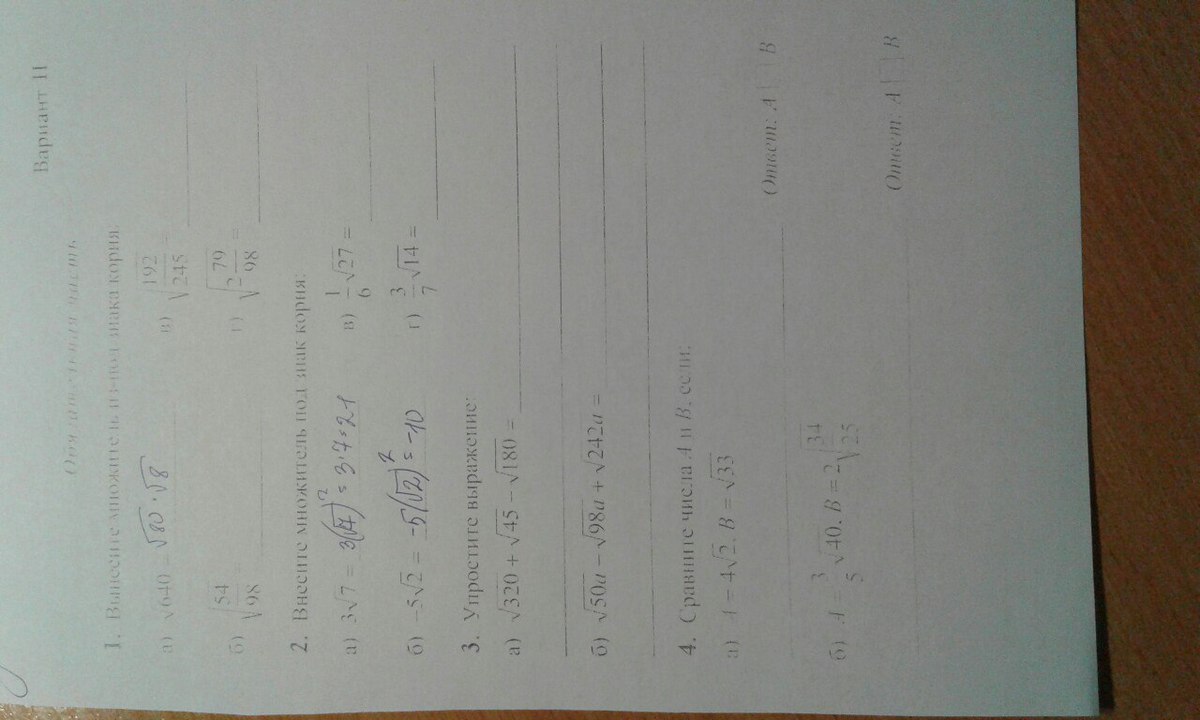 Вариант II
Обязательная часть.
1. Вынесите множитель из-под знака корня:
а) √640 = √80 · √8 в) √(192/245) =
б) √(54/98) г) √(2 79/98) =
2. Внесите множитель под знак корня:
а) 3√7 = 3(√7)² = 3·7=21 в) 1/6 √27 =
б) −5√2 = −5(√2)² = −10 г) 3/7 √14 =
3. Упростите выражение:
а) √320 + √45 − √180 =
б) √50a − √98a + √242a =
4. Сравните числа A и B, если:
а) A = 4√2, B = √33
Ответ: A [ ] B
б) A = 3/5 √40, B = 2√(34/25)
Ответ: A [ ] B